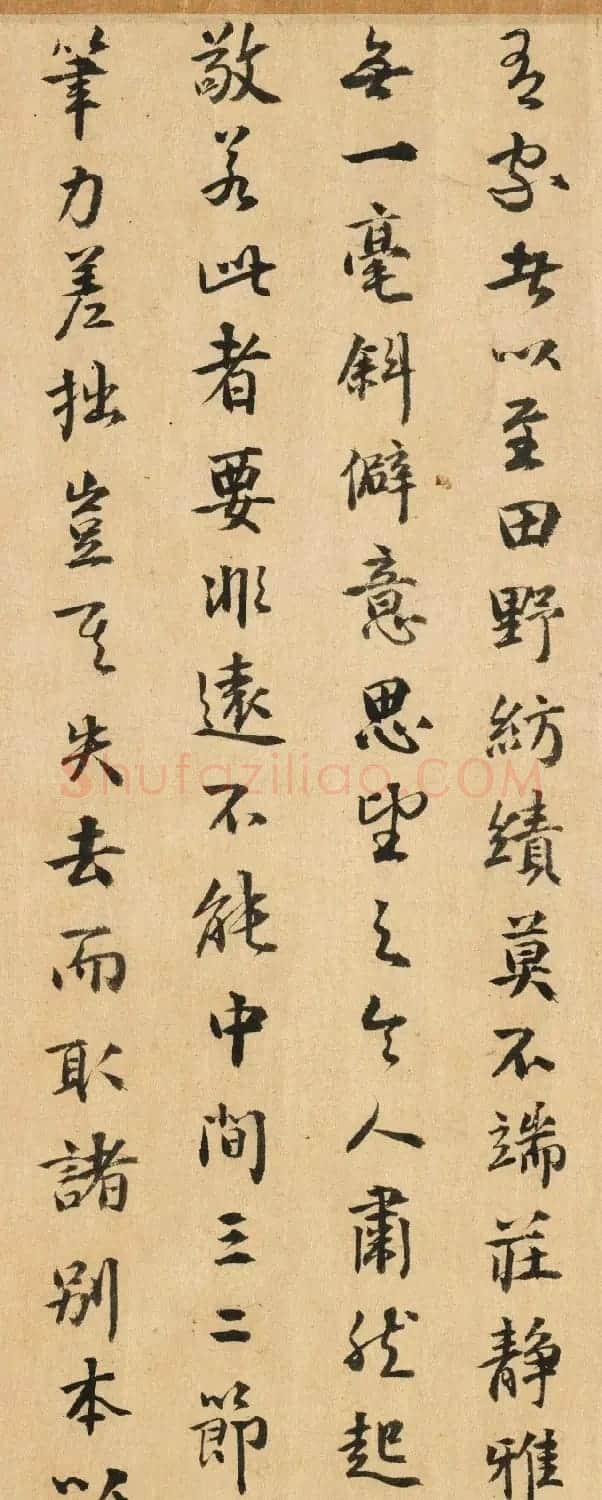 有家者以至田野紡績莫不端莊靜雅
無一毫斜僻意思望之令人肅然起
敬若此者要非遠不能中間三二節
筆力差拙豈其失去而取諸別本以
Shufaziliao.COM